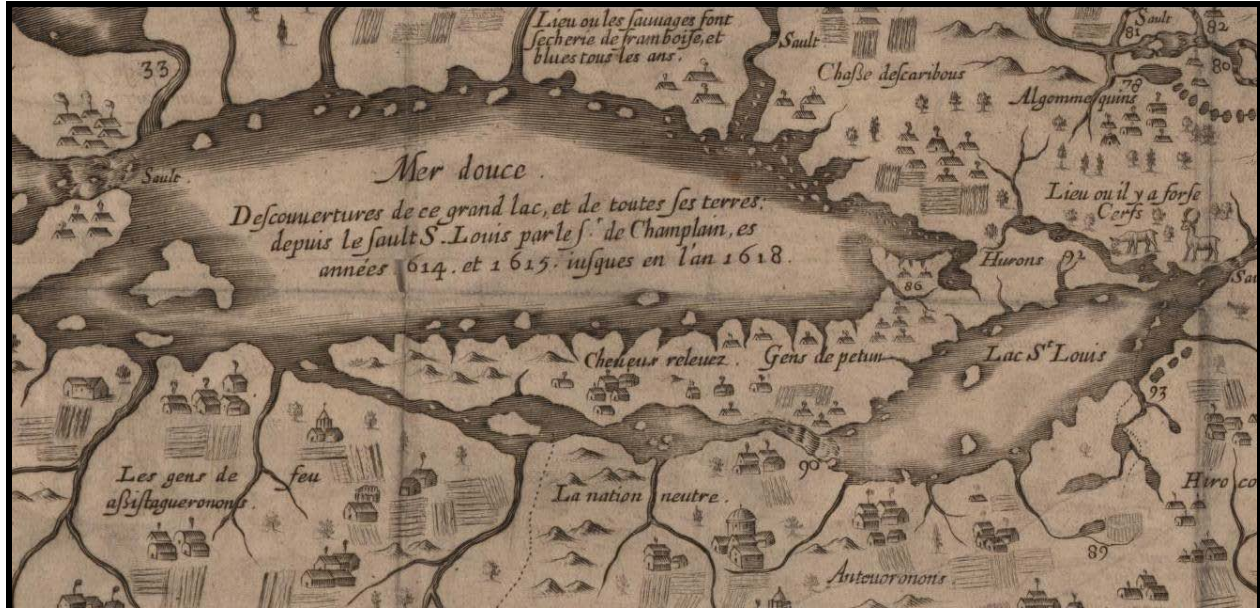 Lieu ou les sauuages font
secherie de framboise, et
blues tous les ans.
Sault
Sault
81
82
80
33
Chasse des caribous
78
Algommequins
Sault.
Mer douce.
Lieu ou il y a forse
Cerfs
Descouuertures de ce grand lac, et de toutes ses terres;
depuis le sault S. Louis par le sr. de Champlain, es
années 1614. et 1615. iusques en l'an 1618.
Hurons
92
Sau
86
Cheueus releuez.
Gens de petun
Lac St Louis
93
90
Les gens de feu
assistagueronons
La nation neutre.
Hiroco
89
Anteuoronons.